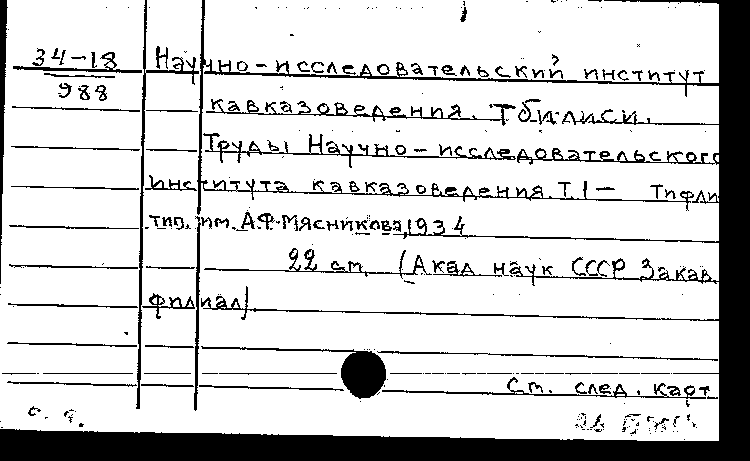 34-18
988
Научно-исследовательский институт
кавказоведения. Тбилиси.
Труды Научно-исследовательского
института кавказоведения. Т.1- Тифли
тип. им. А.Ф. Мясникова, 1934
22 ст. (Акад. наук СССР Закав.
филиал).
Ст. след. карт